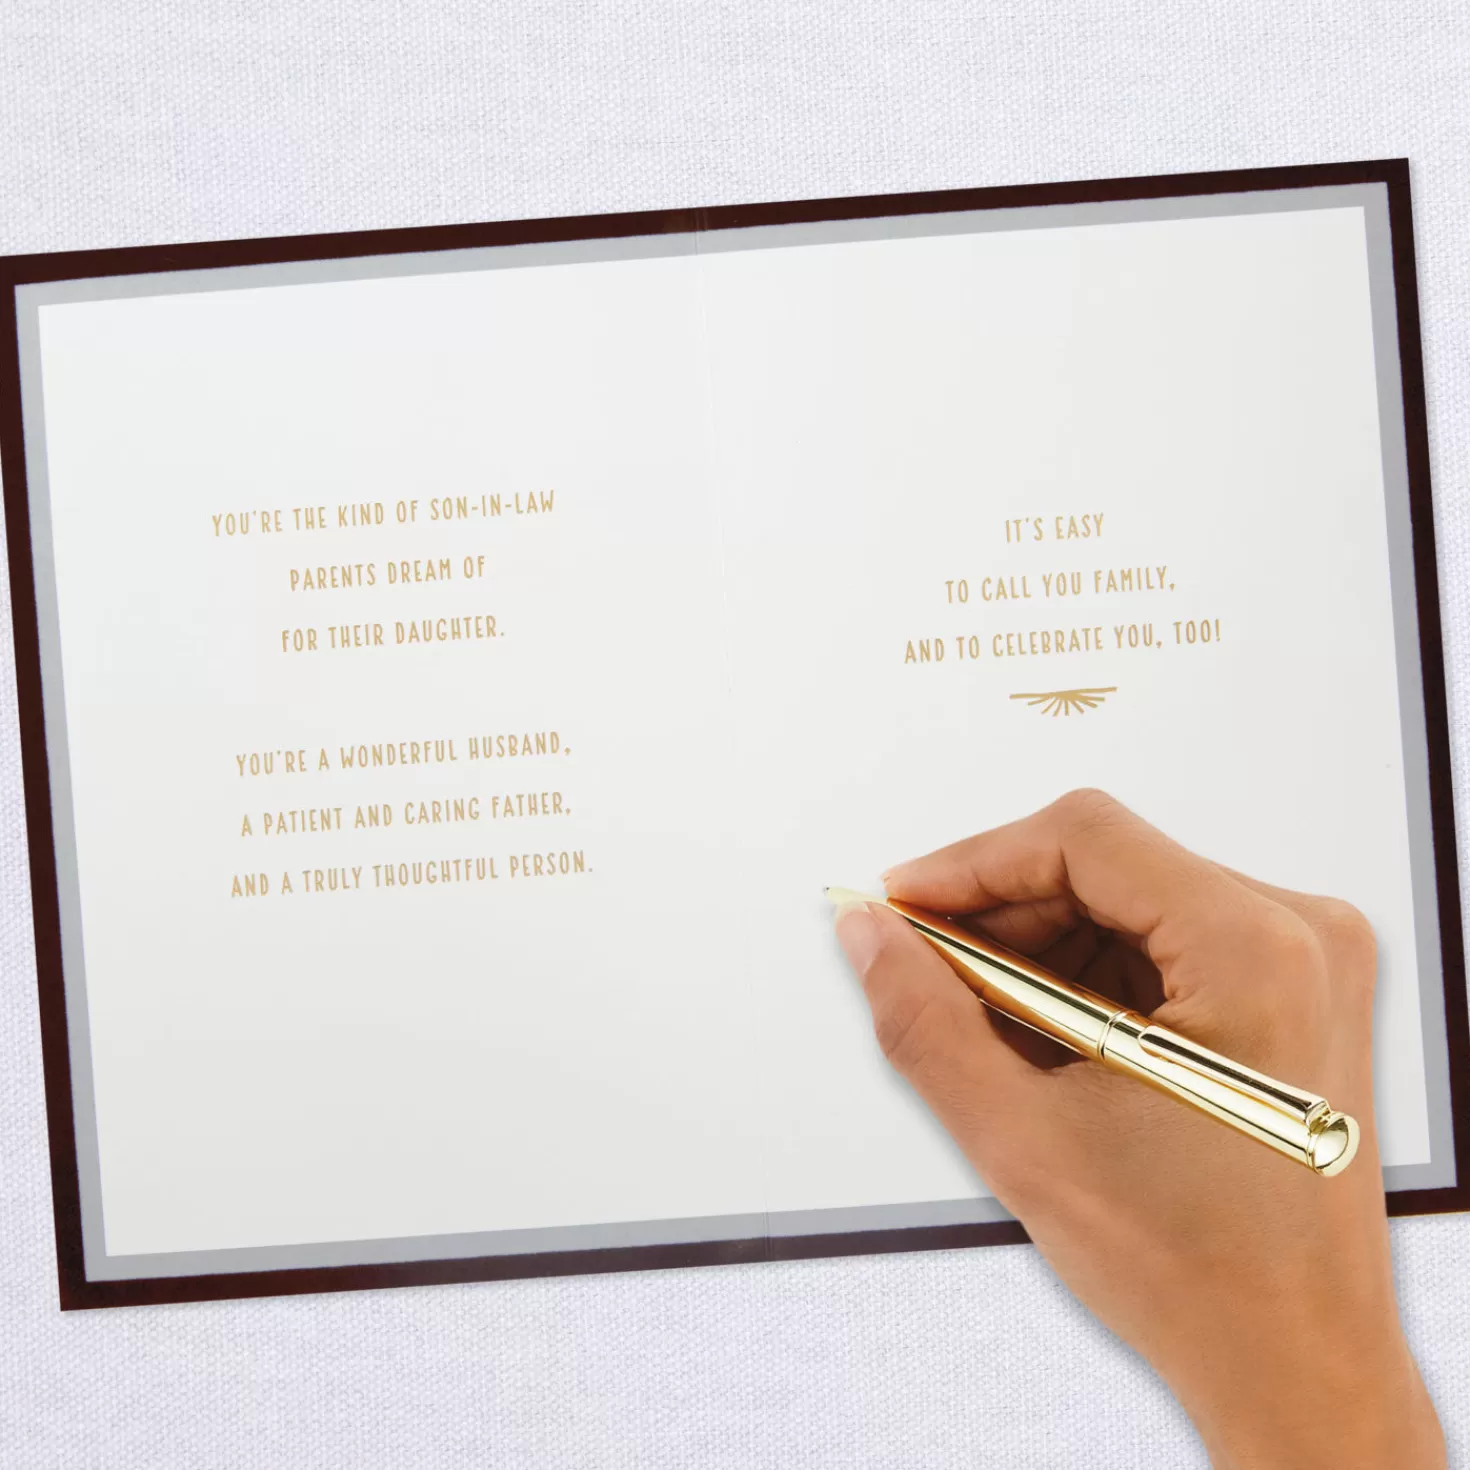 YOU'RE THE KIND OF SON-IN-LAW
PARENTS DREAM OF
FOR THEIR DAUGHTER.
YOU'RE A WONDERFUL HUSBAND,
A PATIENT AND CARING FATHER,
AND A TRULY THOUGHTFUL PERSON.
IT'S EASY
TO CALL YOU FAMILY,
AND TO CELEBRATE YOU, TOO!